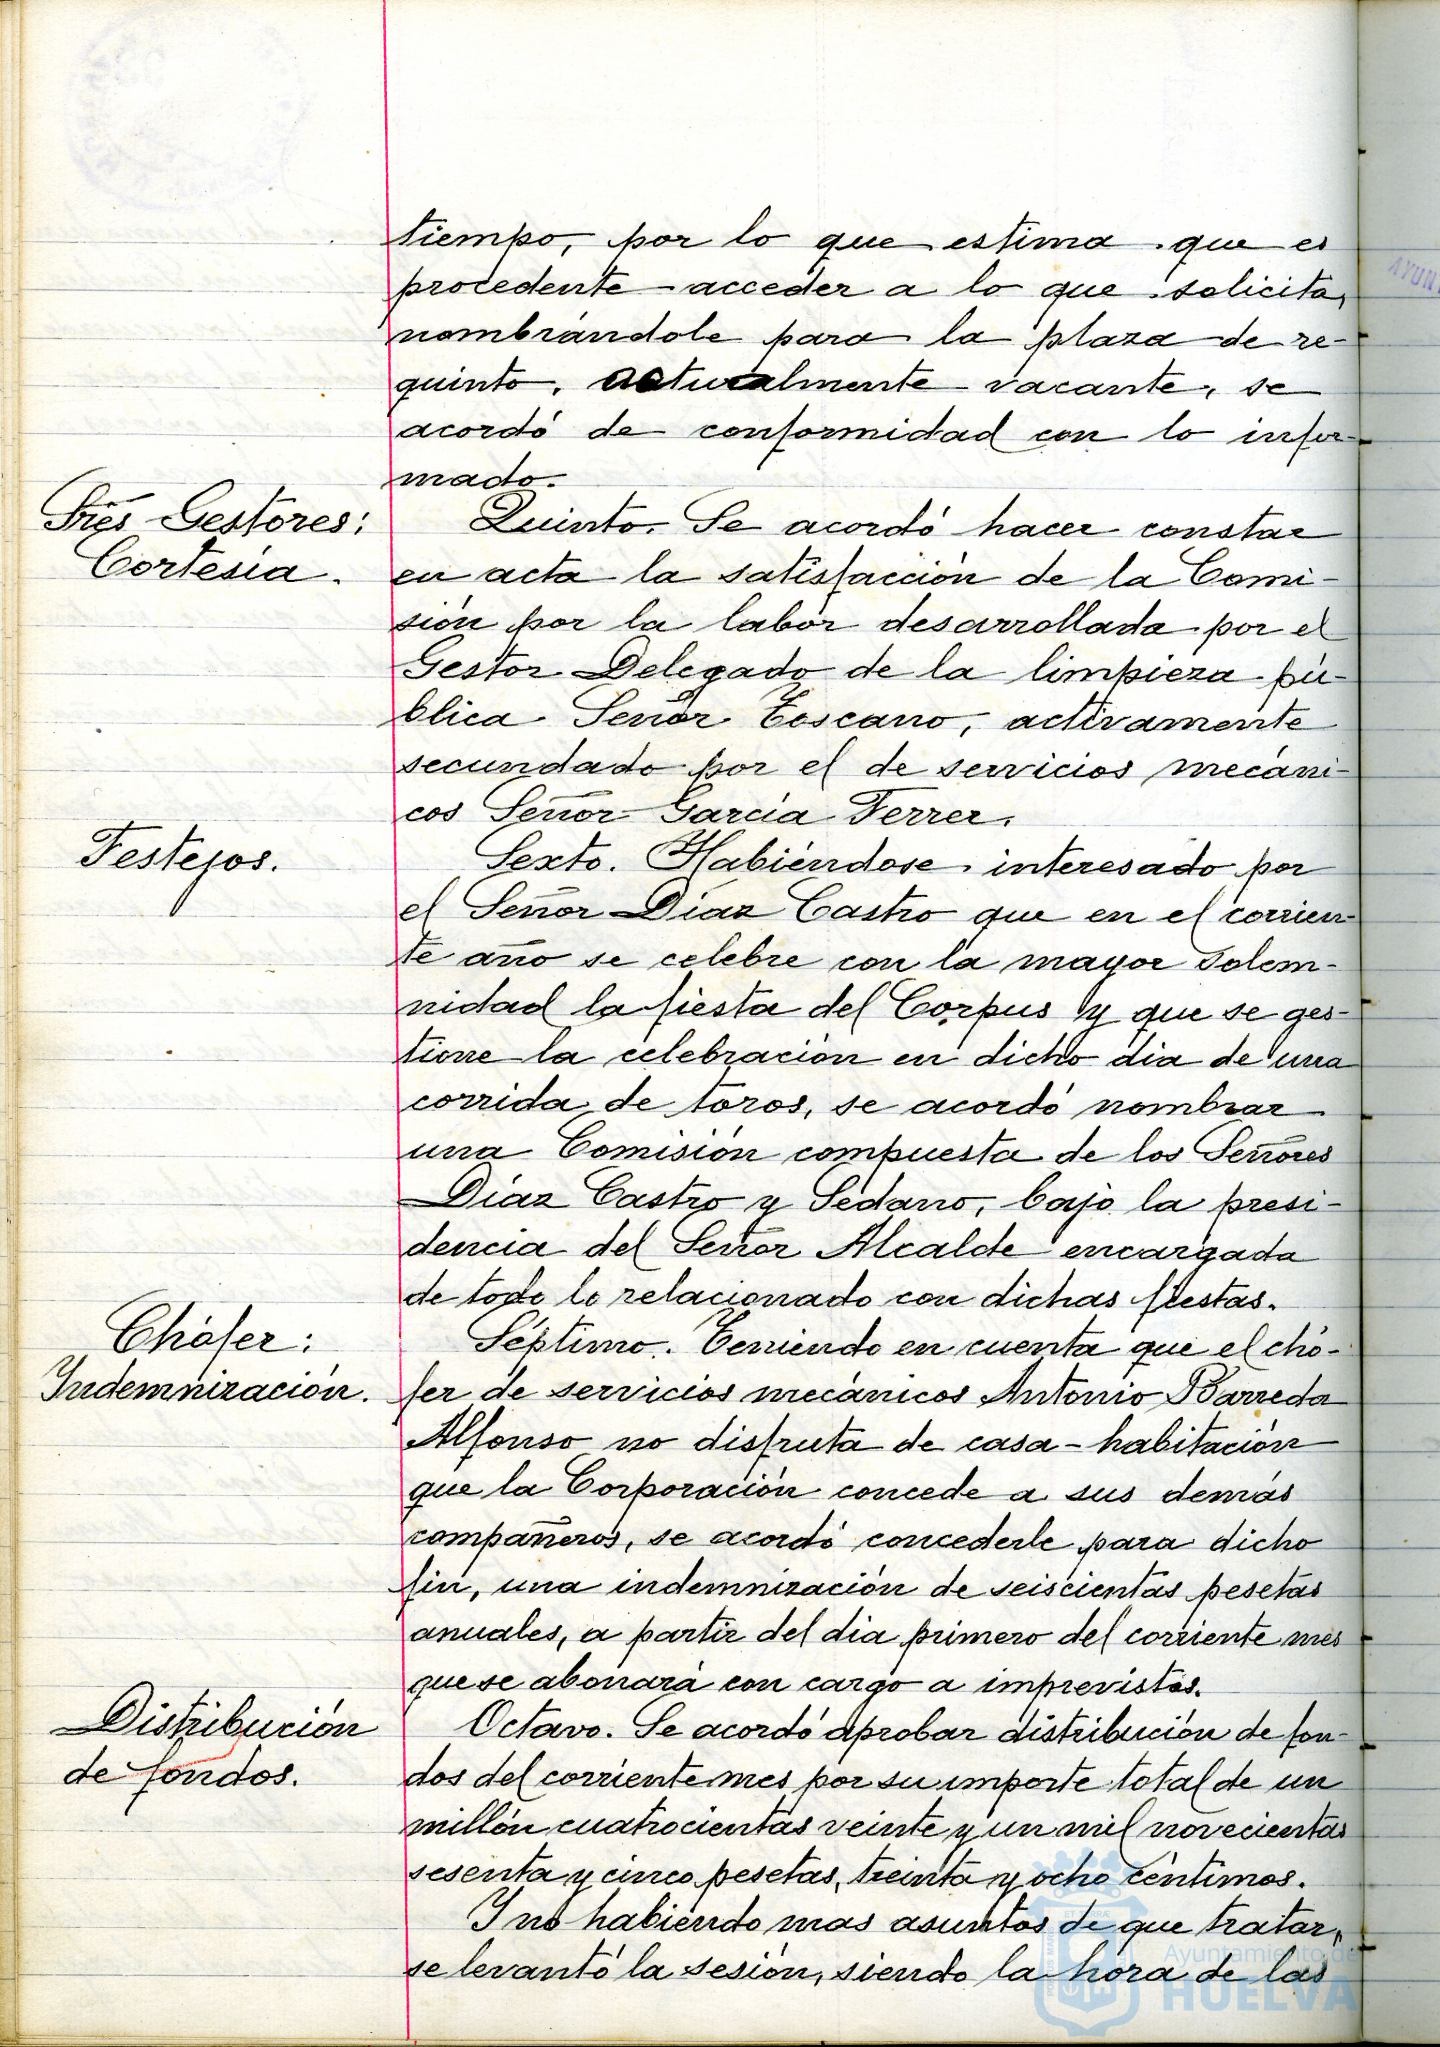 tiempo, por lo que estima que es
procedente acceder a lo que solicita,
nombrándole para la plaza de re-
quinto, actualmente vacante, se
acordó de conformidad con lo infor-
mado.
Sres Gestores:
Cortesía.
Quinto. Se acordó hacer constar
en acta la satisfacción de la Comi-
sión por la labor desarrollada por el
Gestor Delegado de la limpieza pú-
blica Señor Toscano, activamente
secundado por el de servicios mecáni-
cos Señor García Ferrer.
Festejos.
Sexto. Habiéndose interesado por
el Señor Díaz Castro que en el corrien-
te año se celebre con la mayor solem-
nidad la fiesta del Corpus y que se ges-
tione la celebración en dicho dia de una
corrida de toros, se acordó nombrar
una Comisión compuesta de los Señores
Díaz Castro y Sedano, bajo la presi-
dencia del Señor Alcalde encargada
de todo lo relacionado con dichas fiestas.
Chófer:
Indemnización.
Séptimo. Teniendo en cuenta que el chó-
fer de servicios mecánicos Antonio Barreda
Alfonso no disfruta de casa-habitación
que la Corporación concede a sus demás
compañeros, se acordó concederle para dicho
fin, una indemnización de seiscientas pesetas
anuales, a partir del dia primero del corriente mes
que se abonará con cargo a imprevistos.
Distribución
de fondos.
Octavo. Se acordó aprobar distribución de fon-
dos del corriente mes por su importe total de un
millón cuatrocientas veinte y un mil novecientas
sesenta y cinco pesetas, treinta y ocho céntimos.
Y no habiendo mas asuntos de que tratar,
se levantó la sesión, siendo la hora de las
Ayuntamiento de
HUELVA